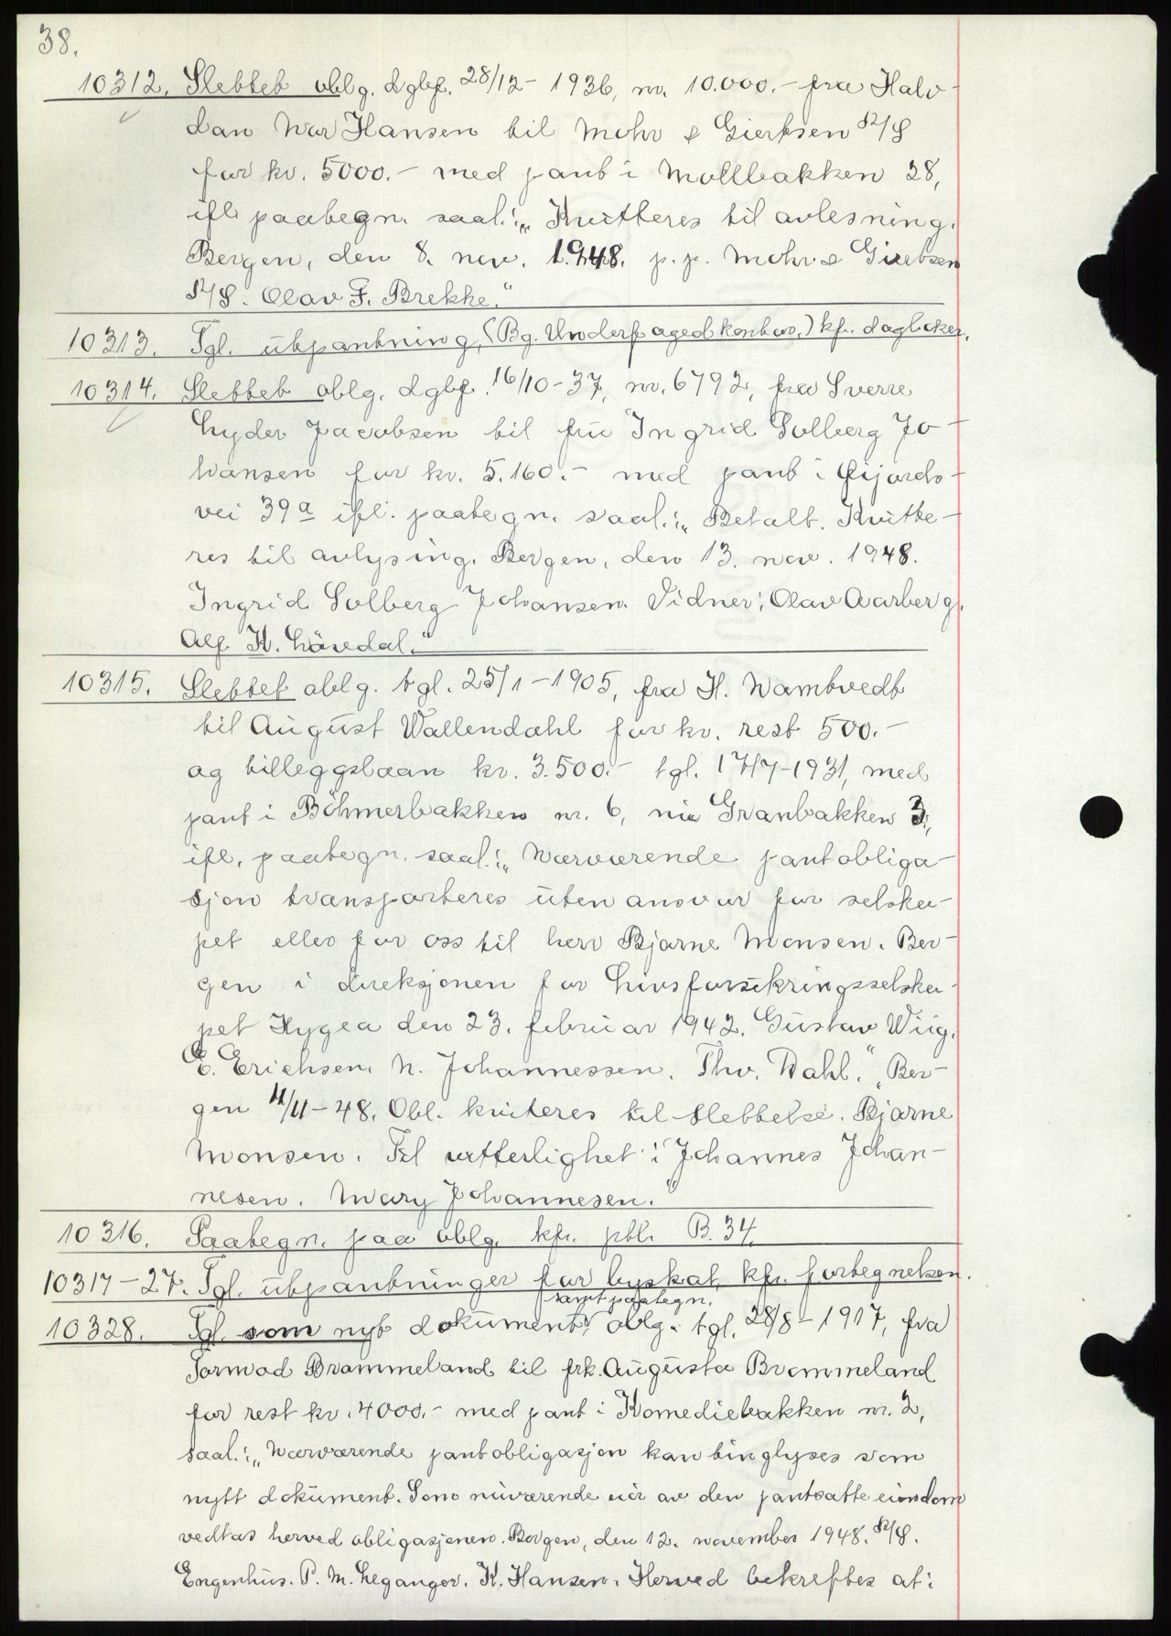 38.
10312. Slettet oblg. dgbf. 28/12 - 1936, nr. 10.000.- fra Halv-
dan War Hansen til Mohr & Giertsen A/S
for kr. 5000.- med pant i Møllbakken 28,
ifl. paategn. saal.: „Kvitteres til avlesning.
Bergen, den 8. nov. 1948. p.p. Mohr & Giertsen
A/S. Olav F. Brekke."
10313. Tgl. utpantning, (Bg. Underfogedkontor,) kfr. dagboken.
10314. Slettet oblg. dgbf. 16/10-37, nr. 6792, fra Sverre
Lyder Jacobsen til fru Ingrid Solberg Jo-
hansen for kr. 5.160.- med pant i
vei 39a ifl. paategn. saal.: „Betalt. Kvitte-
res til avlysing. Bergen, den 13. nov. 1948.
Ingrid Solberg Johansen. Vidner: Olav Aarberg.
Alf K. Løvedal."
10315. Slettet oblg. tgl. 25/1 - 1905, fra H. Wamtvedt
til August Wallendahl for kr. rest 500.-
og tilleggslaan kr. 3.500.- tgl. 17/7-1931, med
pant i Bøhmerbakken nr. 6, nu Granbakken 3,
ifl. paategn. saal.: „Nærværende pantobliga-
sjon transporteres uten ansvar for selska-
pet eller for oss til herr Bjarne Monsen. Ber-
gen i direksjonen for Livsforsikringsselska-
pet Hygea den 23. februar 1942. Gustav Wiig.
C. Erichsen. N. Johannessen. Thv. Dahl." „Ber-
gen 11/11-48. Obl. kviteres til slettelse. Bjarne
Monsen. Til vitterlighet: Johannes Johan-
nesen. Mary Johannesen."
10316. Paategn. paa oblg. kfr. ptbl. B. 34
10317-27. Tgl. utpantninger for byskat, kfr. fortegnelsen.
samt paategn.
10328. Tgl. som nyt dokument: oblg. tgl. 28/8 - 1917, fra
Tormod Brammeland til frk. Augusta Brommeland
for rest kr. 4000.- med pant i Komediebakken nr. 2,
saal.: „Nærværende pantobligasjon kan tinglyses som
nytt dokument. Som nuværende eier av den pantsatte eiendom
vedtas herved obligasjonen. Bergen, den 12. november 1948. A/S.
Engenhus. P. M. Leganger. K. Hansen. Herved bekreftes at: